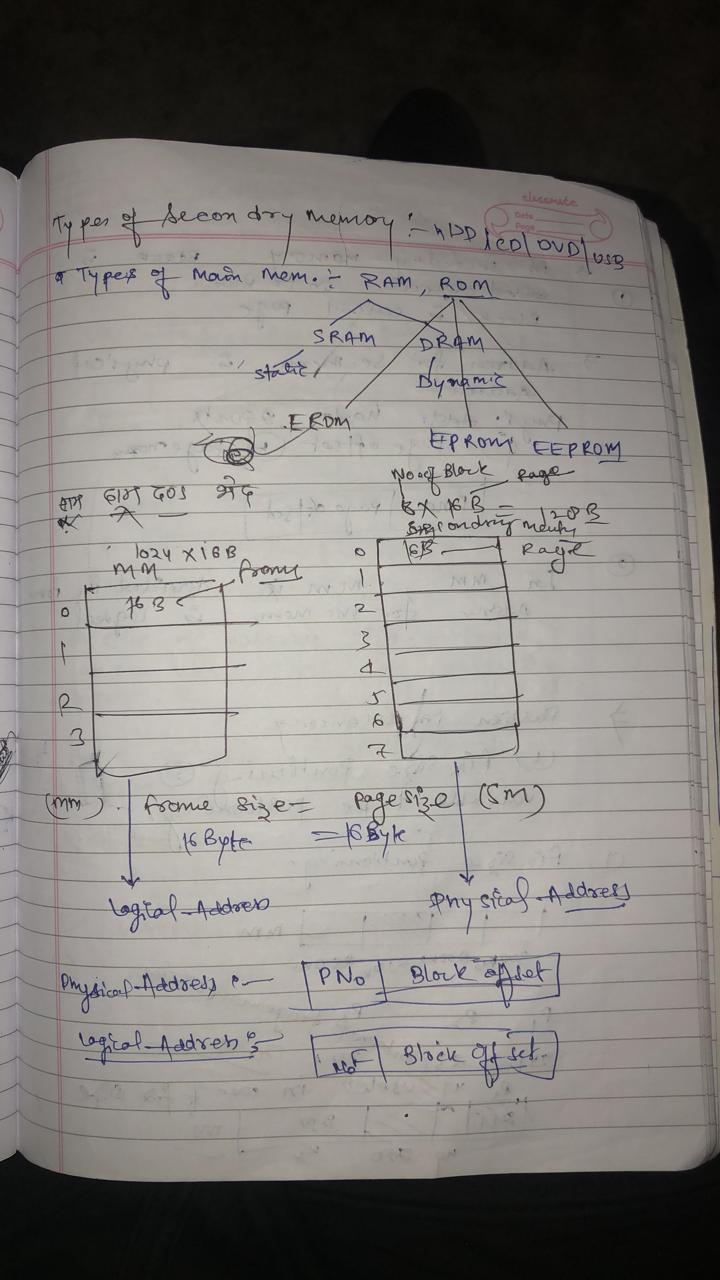 classmate
Date
Page
Types of Secondry Memory :- HDD/CD/DVD/USB
• Types of Main Mem. :- RAM, ROM
SRAM DRAM
Static Dynamic
EROM
EPROM EEPROM
No. of Block Page
साम दाम दण्ड भेद
8 X 16B = 128B
Secondry memory
1024 X 16B
MM
0 16B Page
0 16B
1
1
2
2
3
3
4
5
6
7
(MM). frame size = page size (SM)
16 Byte = 16 Byte
Logical-Address Physical-Address
Physical-Address :- PNo Block offset
Logical-Address :- Block offset